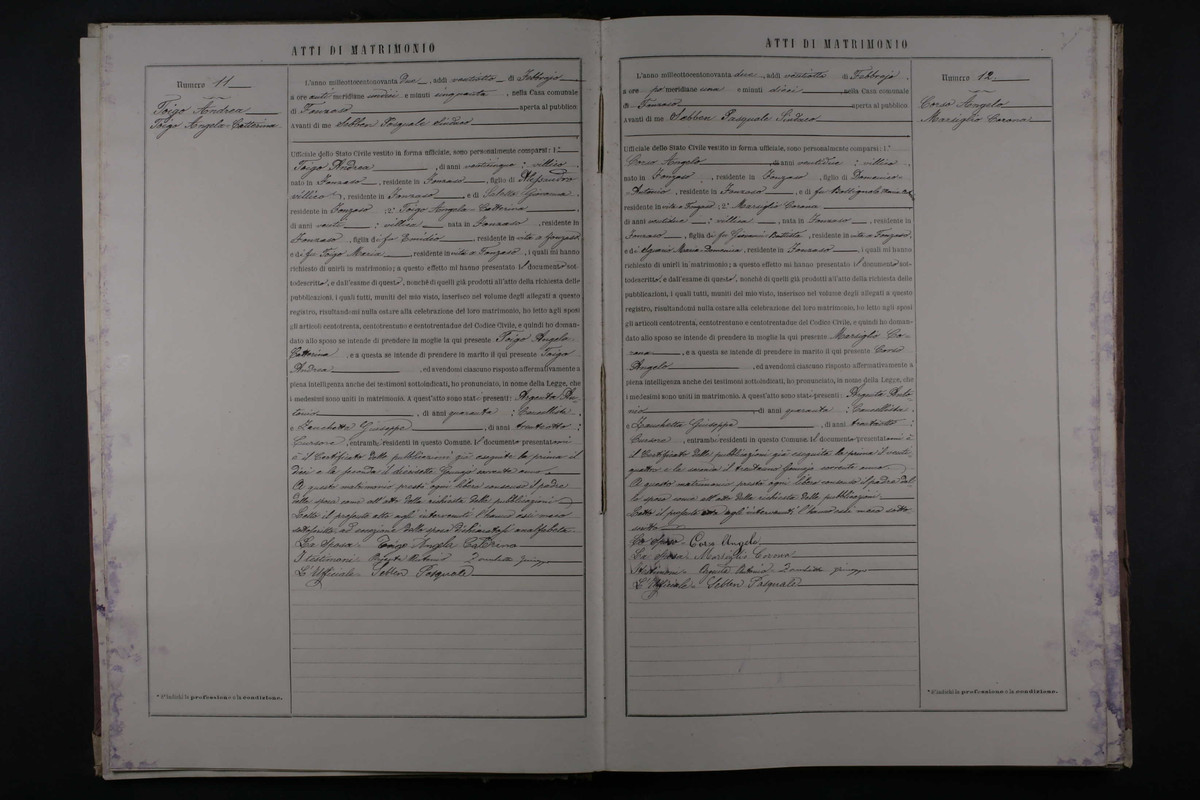 ATTI DI MATRIMONIO
Numero 11
Toigo Andrea
Toigo Angela Catterina
L'anno milleottocentonovanta due, addì ventiotto di Febbrajo
a ore anti meridiane undici e minuti cinquanta, nella Casa comunale
di Fonzaso aperta al pubblico.
Avanti di me Sebben Pasquale Sindaco
Ufficiale dello Stato Civile vestito in forma ufficiale, sono personalmente comparsi: 1.°
Toigo Andrea, di anni venticinque: villico
nato in Fonzaso, residente in Fonzaso, figlio di Alessandro
villico, residente in Fonzaso e di Giovanna
residente in Fonzaso; 2.° Toigo Angela Catterina
di anni venti: villica nata in Fonzaso, residente in
Fonzaso, figlia di fu Emidio, residente in vita a Fonzaso
e di fu Toigo Maria, residente in vita a Fonzaso, i quali mi hanno
richiesto di unirli in matrimonio; a questo effetto mi hanno presentato il documento sot-
todescritto, e dall'esame di questo, nonchè di quelli già prodotti all'atto della richiesta delle
pubblicazioni, i quali tutti, muniti del mio visto, inserisco nel volume degli allegati a questo
registro, risultandomi nulla ostare alla celebrazione del loro matrimonio, ho letto agli sposi
gli articoli centotrenta, centotrentuno e centotrentadue del Codice Civile, e quindi ho doman-
dato allo sposo se intende di prendere in moglie la qui presente Toigo Angela
Catterina, e a questa se intende di prendere in marito il qui presente Toigo
Andrea, ed avendomi ciascuno risposto affermativamente a
piena intelligenza anche dei testimoni sottoindicati, ho pronunciato, in nome della Legge, che
i medesimi sono uniti in matrimonio. A quest'atto sono stati presenti: Argenta An-
tonio, di anni quaranta: Cancellista
e Zanchetta Giuseppe, di anni trentotto:
Cursore, entrambi residenti in questo Comune. Il documento presentatomi
è il Certificato delle pubblicazioni già eseguite la prima il
dieci e la seconda il diciasette Gennajo corrente anno
A questo matrimonio prestò ogni libero consenso il padre
dello sposo come all'atto della richiesta delle pubblicazioni
Letto il presente atto agli intervenuti l'hanno essi meco
sottofirmato ad eccezione dello sposo dichiaratosi analfabeta
La Sposa Toigo Angela Caterina
I testimoni Argenta Antonio Zanchetta Giuseppe
L'Ufficiale Sebben Pasquale
* S'indichi la professione o la condizione.
ATTI DI MATRIMONIO
Numero 12
Corso Angelo
Marsiglio Corona
L'anno milleottocentonovanta due, addì ventiotto di Febbrajo,
a ore po meridiane una e minuti dieci, nella Casa comunale
di Fonzaso aperta al pubblico.
Avanti di me Sebben Pasquale Sindaco
Ufficiale dello Stato Civile vestito in forma ufficiale, sono personalmente comparsi: 1.°
Corso Angelo, di anni ventidue: villico
nato in Fonzaso, residente in Fonzaso, figlio di Domenico
Antonio, residente in Fonzaso e di fu
residente in vita a Fonzaso; 2.° Marsiglio Corona
di anni ventidue: villica, nata in Fonzaso, residente in
Fonzaso, figlia di fu Giovanni Battista, residente in vita a Fonzaso,
e di Maria Domenica, residente in Fonzaso, i quali mi hanno
richiesto di unirli in matrimonio; a questo effetto mi hanno presentato il documento sot-
todescritto, e dall'esame di questo, nonchè di quelli già prodotti all'atto della richiesta delle
pubblicazioni, i quali tutti, muniti del mio visto, inserisco nel volume degli allegati a questo
registro, risultandomi nulla ostare alla celebrazione del loro matrimonio, ho letto agli sposi
gli articoli centotrenta, centotrentuno e centotrentadue del Codice Civile, e quindi ho doman-
dato allo sposo se intende di prendere in moglie la qui presente Marsiglio Co-
rona, e a questa se intende di prendere in marito il qui presente Corso
Angelo, ed avendomi ciascuno risposto affermativamente a
piena intelligenza anche dei testimoni sottoindicati, ho pronunciato, in nome della Legge, che
i medesimi sono uniti in matrimonio. A quest'atto sono stati presenti: Argenta Anto-
nio, di anni quaranta: Cancellista
e Zanchetta Giuseppe, di anni trentotto:
Cursore, entrambi residenti in questo Comune. Il documento presentatomi è
il Certificato delle pubblicazioni già eseguite la prima il venti-
quattro e la seconda il trentuno Gennajo corrente anno
A questo matrimonio prestò ogni libero consenso il padre del-
lo sposo come all'atto della richiesta delle pubblicazioni
Letto il presente atto agli intervenuti l'hanno essi meco sotto
scritto
Lo Sposo Corso Angelo
La Sposa Marsiglio Corona
I testimoni Argenta Antonio Zanchetta Giuseppe
L'Ufficiale Sebben Pasquale
* S'indichi la professione o la condizione.